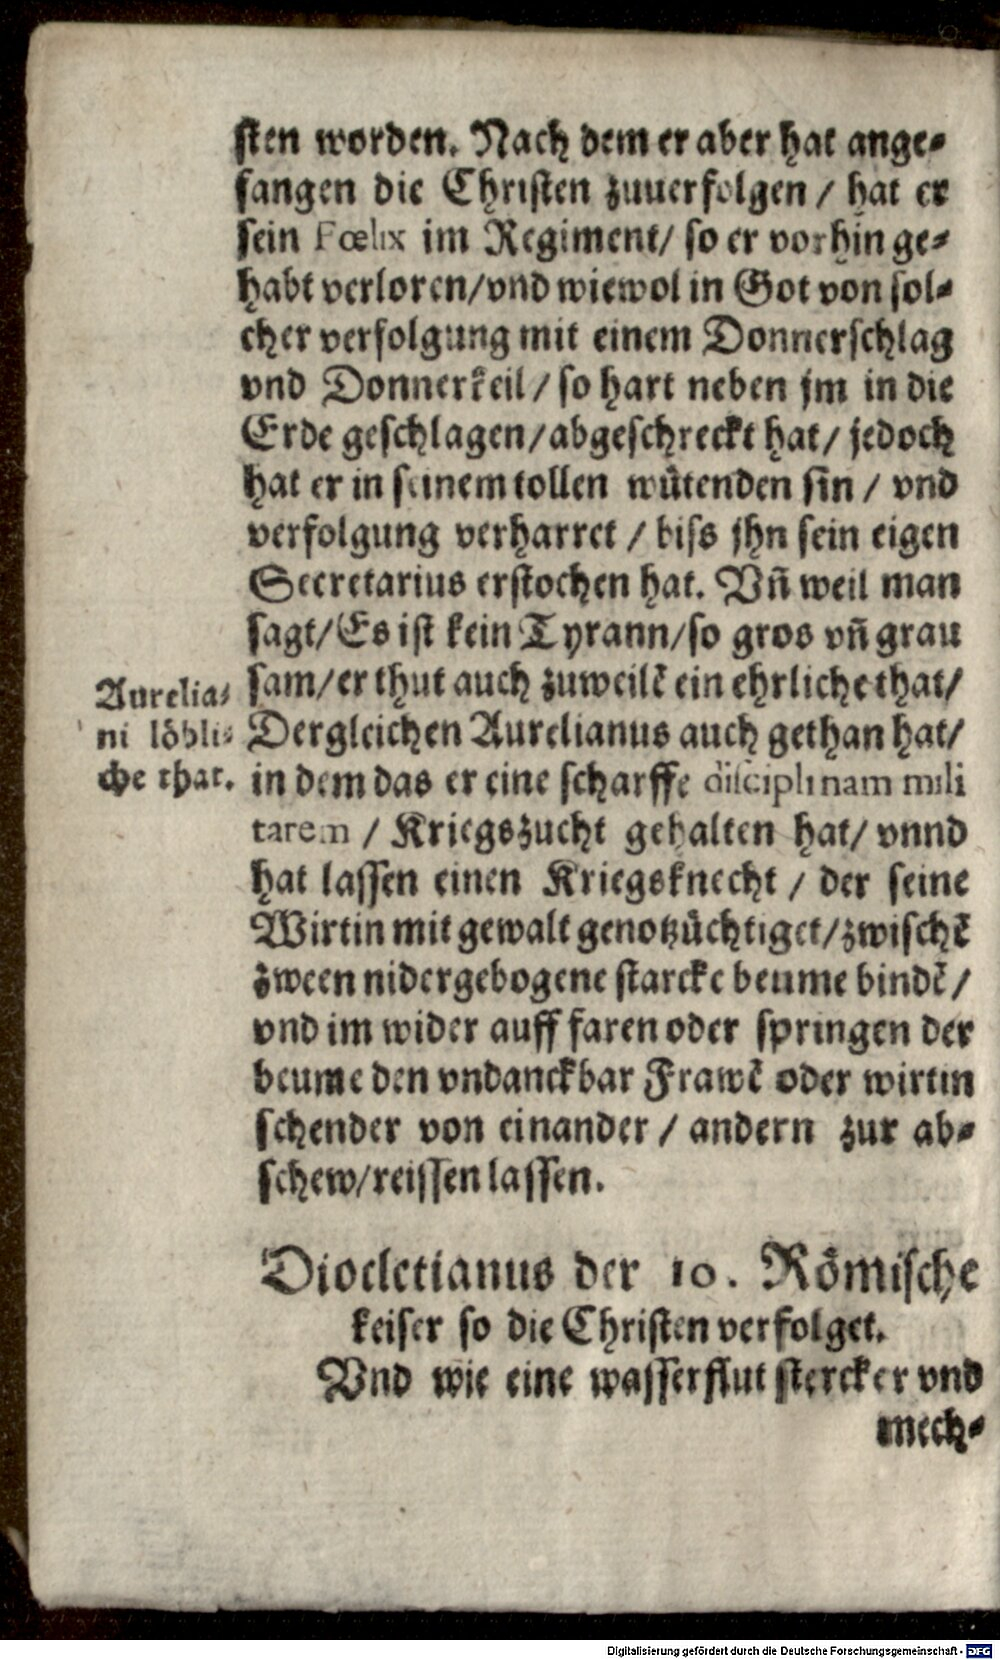 sten worden. Nach dem er aber hat ange-
fangen die Christen zuuerfolgen / hat er
sein Fœlix im Regiment/ so er vorhin ge-
habt verloren/vnd wiewol in Got von sol-
cher verfolgung mit einem Donnerschlag
vnd Donnerkeil / so hart neben jm in die
Erde geschlagen/abgeschreckt hat/ jedoch
hat er in seinem tollen wütenden sin / vnd
verfolgung verharret / biss jhn sein eigen
Secretarius erstochen hat. Vñ weil man
sagt/Es ist kein Tyrann/so gros vñ grau
sam/er thut auch zuweilē ein ehrliche that/
Aurelia-
ni löbli-
che that.
Dergleichen Aurelianus auch gethan hat/
in dem das er eine scharffe disciplinam mili
tarem / Kriegszucht gehalten hat/ vnnd
hat lassen einen Kriegsknecht / der seine
Wirtin mit gewalt genotzüchtiget/zwischē
zween nidergebogene starcke beume bindē /
vnd im wider auff faren oder springen der
beume den vndanckbar Frawē oder wirtin
schender von einander / andern zur ab-
schew/reissen lassen.
Diocletianus der 10. Römische
keiser so die Christen verfolget.
Vnd wie eine wasserflut stercker vnd
mech-
Digitalisierung gefördert durch die Deutsche Forschungsgemeinschaft - DFG